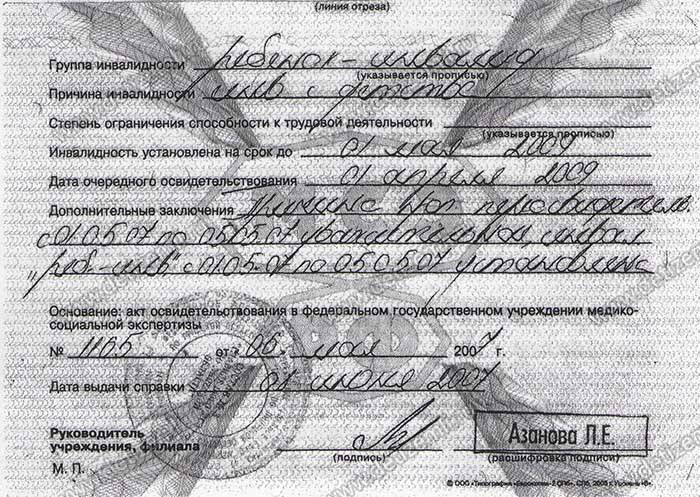 (линия отреза)
Группа инвалидности ребенок - инвалид
(указывается прописью)
Причина инвалидности инв с детства
Степень ограничения способности к трудовой деятельности
(указывается прописью)
Инвалидность установлена на срок до 01 мая 2009
Дата очередного освидетельствования 01 апреля 2009
Дополнительные заключения Причина
с 01.05.07 по 05.05.07 уважительная, инвал
"реб.-инв" с 01.05.07 по 05.05.07 установлена
Основание: акт освидетельствования в федеральном государственном учреждении медико-
социальной экспертизы
№ 1165 от 06 мая 2007 г.
Дата выдачи справки 01 июня 2007
Руководитель
учреждения, филиала
(подпись)
Азанова Л.Е.
(расшифровка подписи)
М. П.